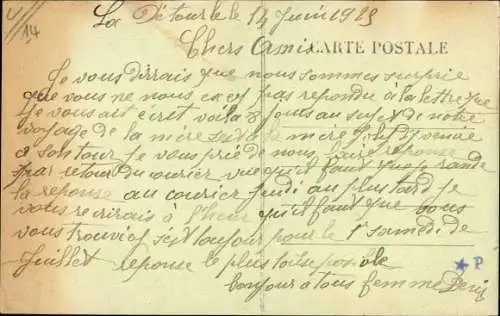 14
La Détour le 14 Juin 1925
Chers Amix CARTE POSTALE
Je vous dirrais que nous sommes surprie
que vous ne nous pas repondu à la lettre que
Je vous ait ecrit voila 8 jours au sujet de notre
voyage de la mère mère
a son tour Je vous prie de nous faire reponse
par retour du courier vu qu'il faut que prande
la reponse au courier jeudi au plus tard je
vous recrirais à l'heur qu'il faut que vous
vous trouviez toujour pour le 1 samedi de
Juillet reponse le plus posible
bonjour a tous femme Denis
★ P